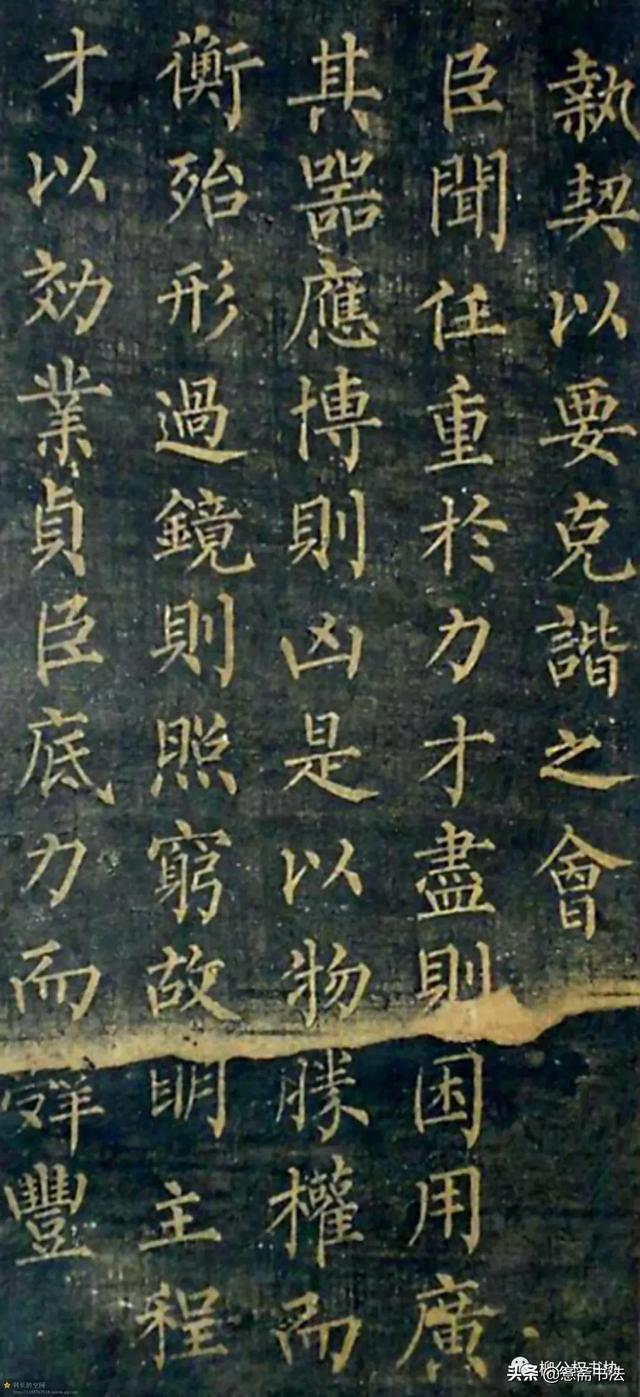 執契以要克諧之會
臣聞任重於力才盡則困用廣
其器應博則凶是以物勝權而
衡殆形過鏡則照窮故明主程
才以効業貞臣底力而辤豐
柳公权书协
头条